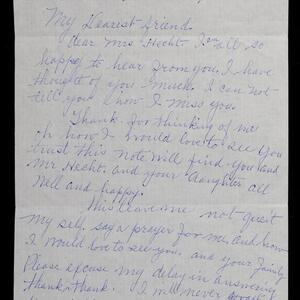 My Dearest Friend.
Dear Mrs Hecht. I am all so
happy to hear from you. I have
thought of you much. I can not
tell you how I miss you.
Thank. for thinking of me
oh how I would love to see you
trust this note will find you and
Mr Hecht. and your daughter all
Well and happy.
This leave me not quest
my self. say a prayer for me and how
I would love to see you, and your Family
Please excuse my delay in answering
thank. thank. I will never forget